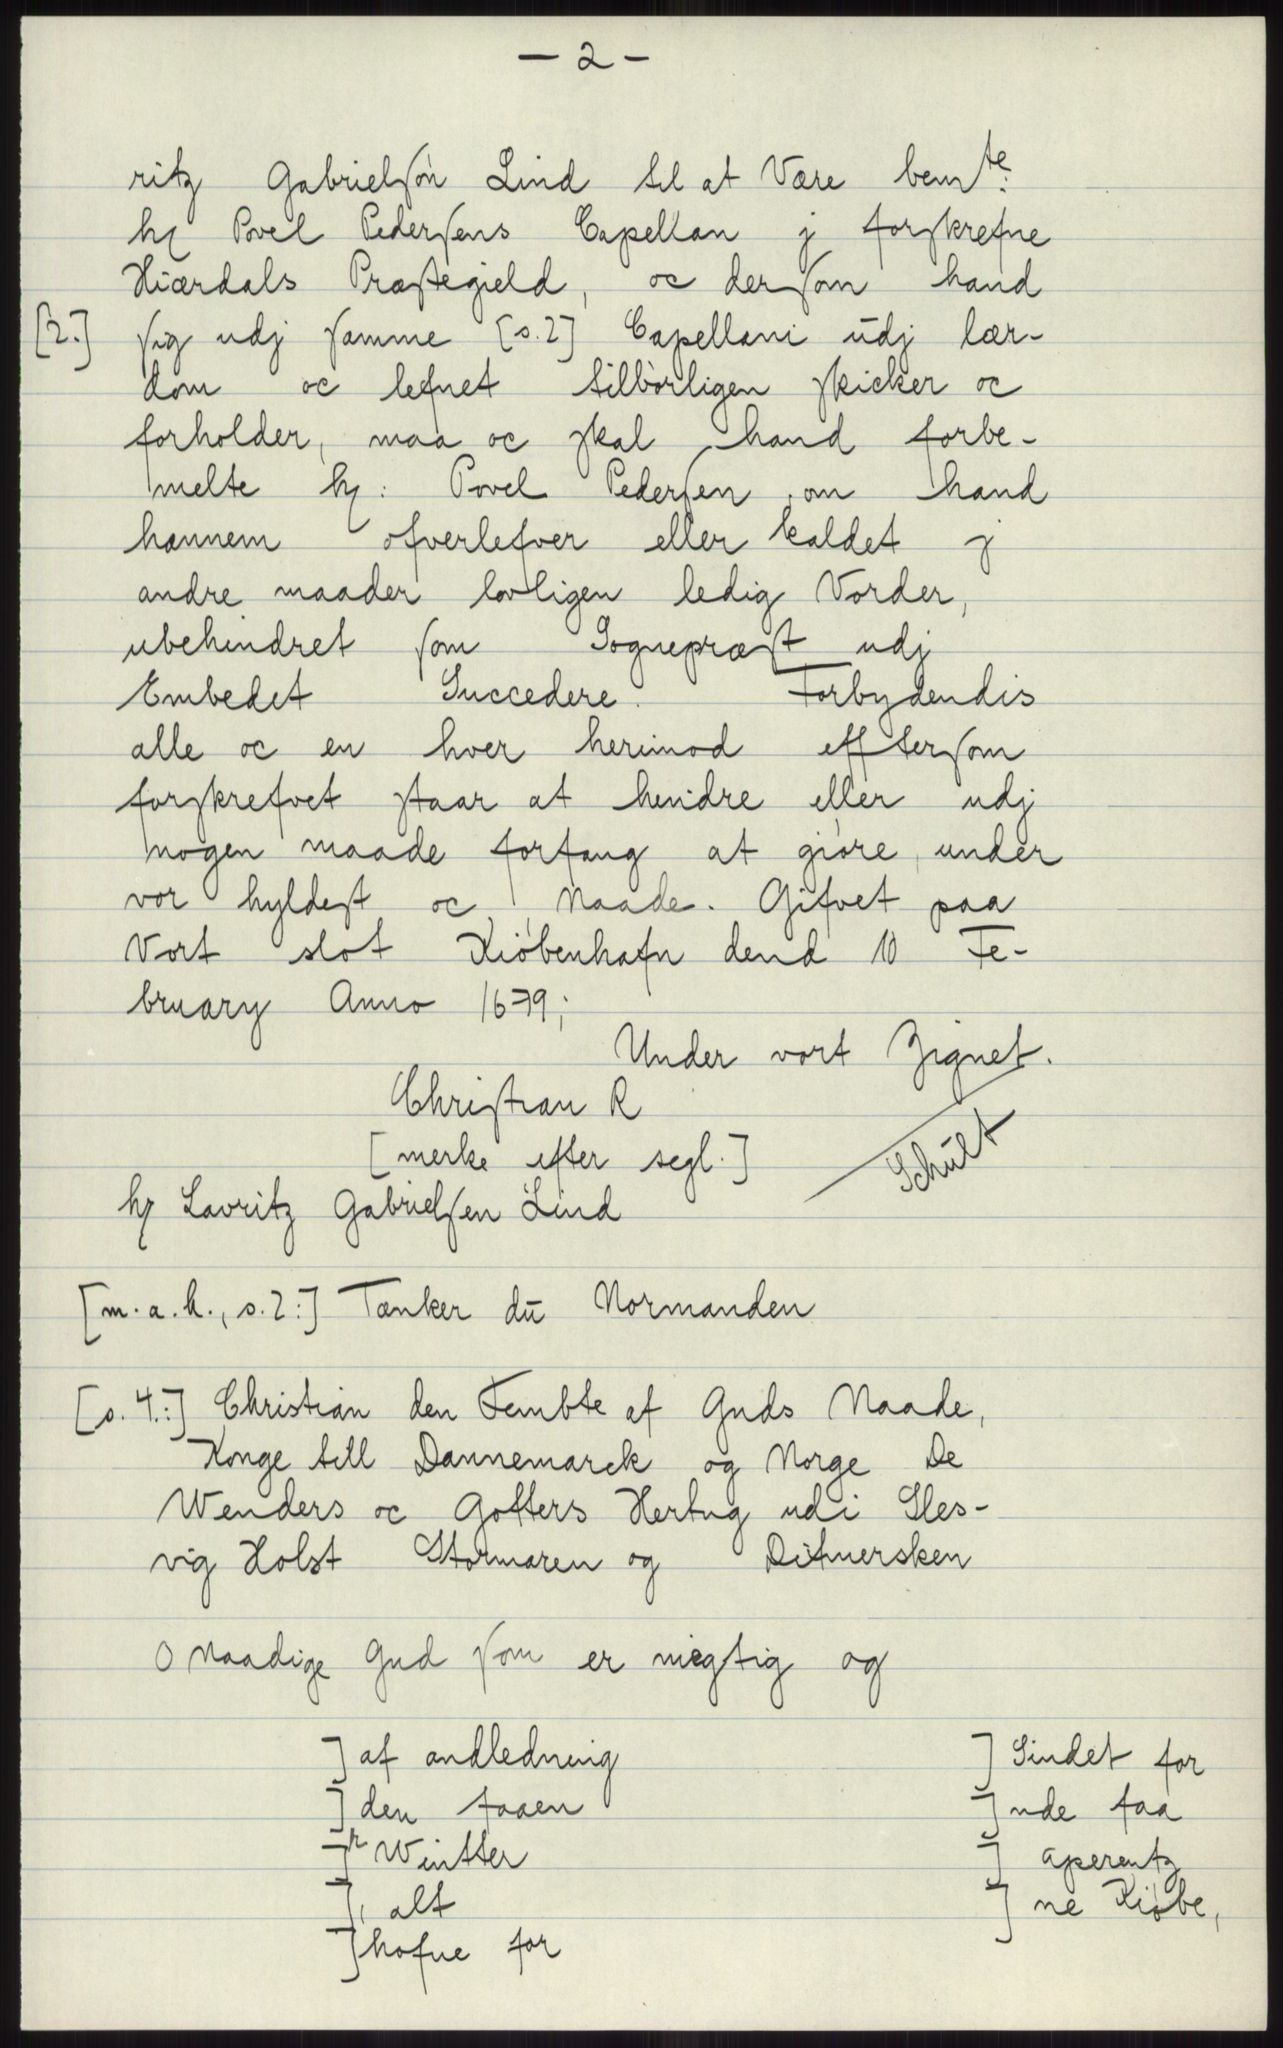 - 2 -
ritz Gabrielsøn Lind til at Være bem^te:
hr Povel Pedersens Capellan j forskrefne
Hiærdals Præstegield, oc dersom hand
[2.] sig udj samme [s.2] Capellani udj lær-
dom oc lefnet tilbørligen skicker oc
forholder, maa oc skal hand forbe-
melte hr: Povel Pedersen, om hand
hannem ofverlefver eller kaldet j
andre maader lovligen ledig Vorder,
ubehindret som Sognepræst udj
Embedet Succedere. Forbydendis
alle oc en hver herimod eftersom
forskrefvet staar at hindre eller udj
nogen maade forfang at giøre, under
vor hyldest oc Naade. Gifvet paa
Vort slot Kiøbenhafn dend 10 Fe-
bruary Anno 1679;
Under vort Zignet.
Christian R
[merke efter segl.]
Schült
hr Lavritz Gabrielsen Lind
[m.a.h., s.2:] Tænker du Normanden
[s. 4.:] Christian den Fembte af Guds Naade,
Konge till Dannemarck og Norge De
Wenders oc Gotters Hertug udi Sles-
vig Holst Stormaren og Ditmersken
O Naadige Gud som er megtig og
] af andledning ] Sindet for
] den faaen ] nde faa
]r Wintter ] aperentz
], alt ] ne Kiøbe,
] hafne for